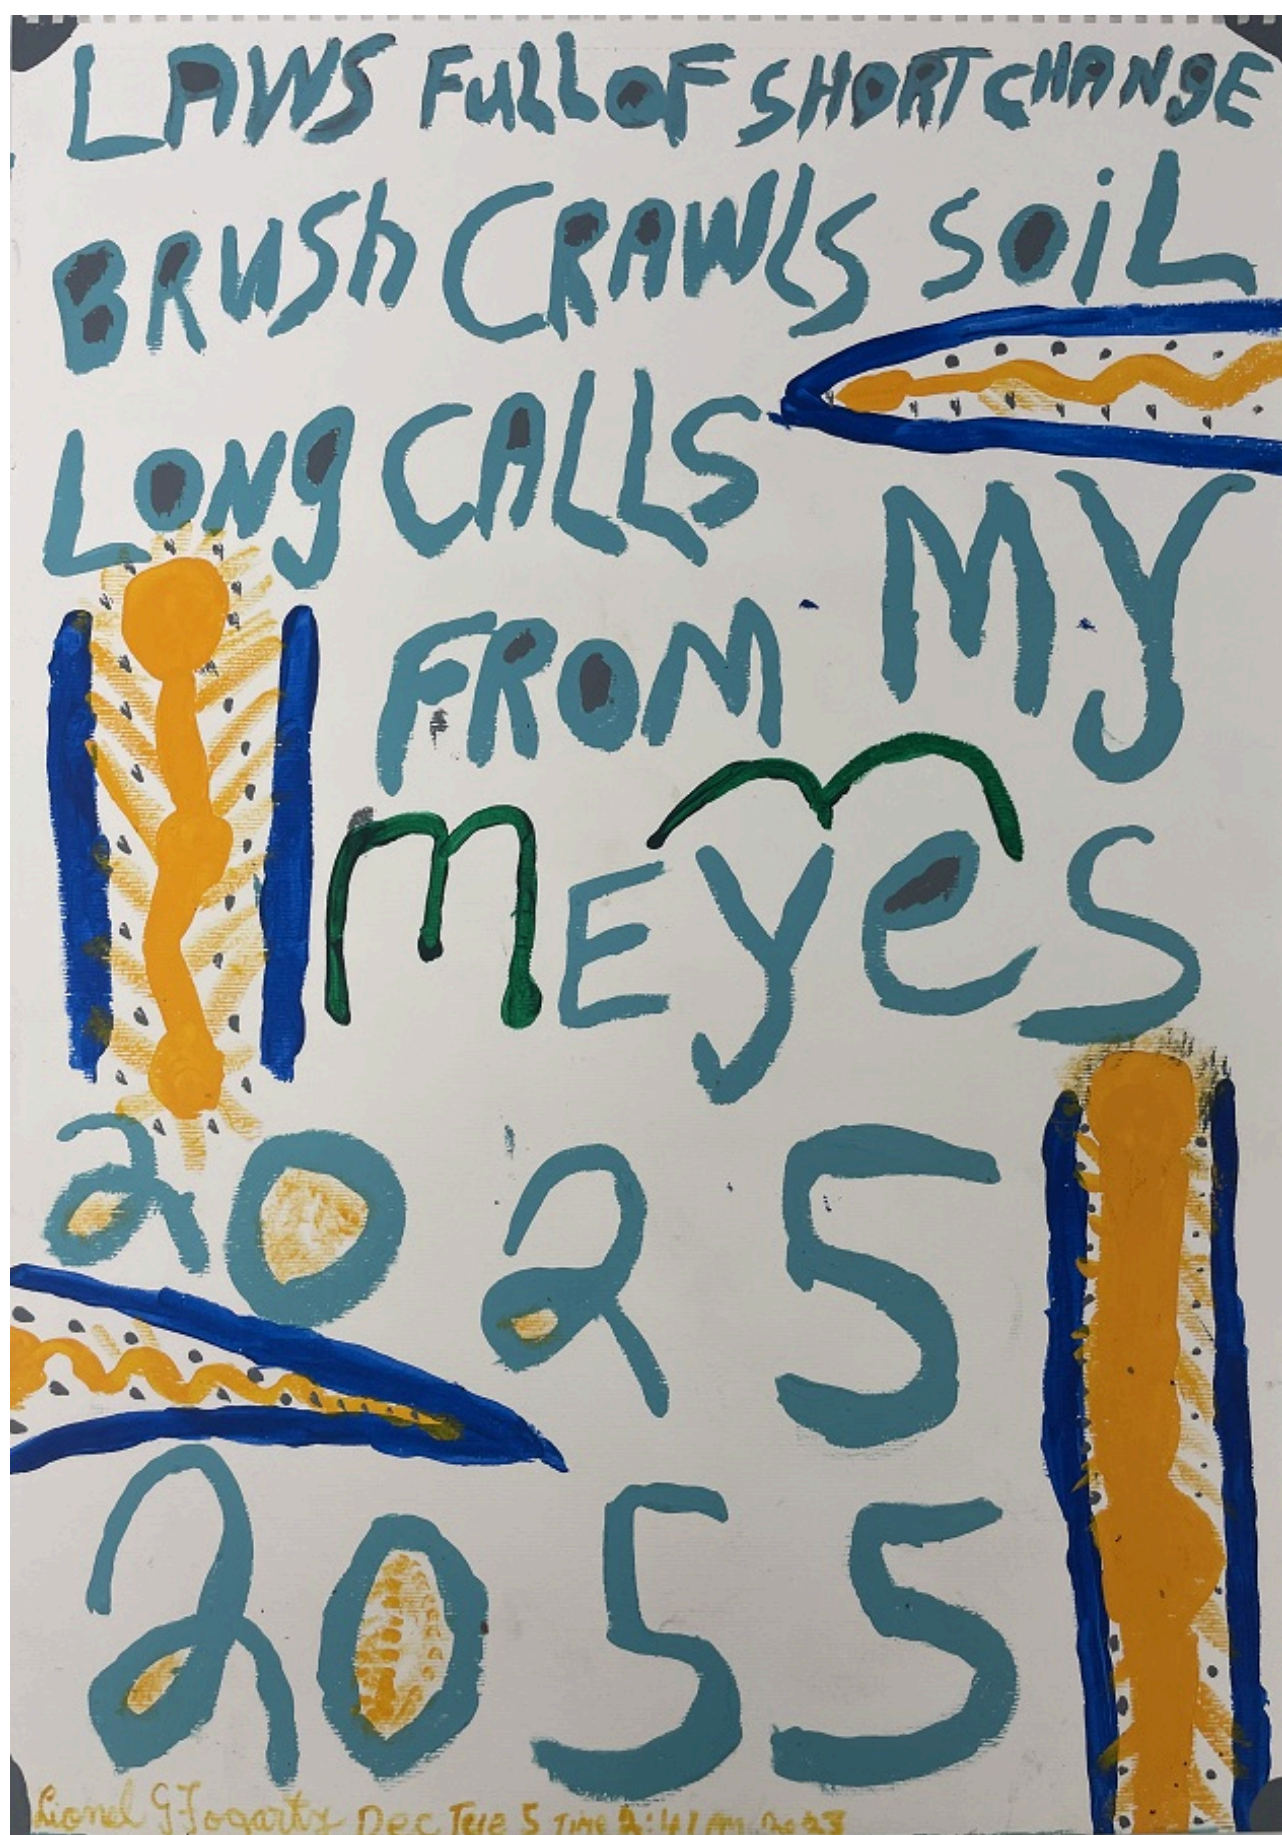 LAWS FULL OF SHORT CHANGE
BRUSh CRAWLS SOiL
LONg CALLS
FROM MY
m EyeS
2025
2055
Lionel G Fogarty Dec Tere 5 Time 2:41 Am 2023